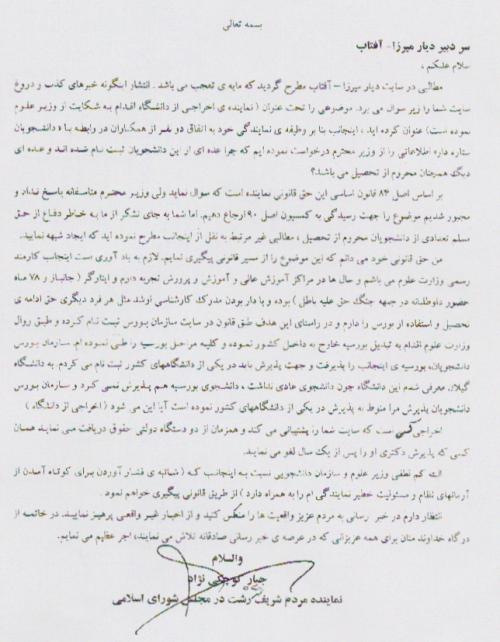 بسمه تعالی
سر دبیر دیار میرزا - آفتاب
سلام علیکم ،
مطالبی در سایت دیار میرزا – آفتاب مطرح گردید که مایه ی تعجب می باشد . انتشار اینگونه خبرهای کذب و دروغ
سایت شما را زیر سوال می برد. موضوعی را تحت عنوان ( نماینده ی اخراجی از دانشگاه اقدام به شکایت از وزیر علوم
نموده است) عنوان کرده اید ، اینجانب بنا بر وظیفه ی نمایندگی خود به اتفاق دو نفر از همکاران در رابطه با دانشجویان
ستاره دار اطلاعاتی را از وزیر محترم درخواست نموده ایم که چرا عده ای از این دانشجویان ثبت نام شده اند و عده ای
دیگر همچنان محروم از تحصیل می باشند؟
بر اساس اصل ۸۴ قانون اساسی این حق قانونی نماینده است که سوال نماید ولی وزیر محترم متاسفانه پاسخ نداد و
مجبور شدیم موضوع را جهت رسیدگی به کمسیون اصل ۹۰ ارجاع دهیم. اما شما به جای تشکر از ما به خاطر دفاع از حق
مسلم تعدادی از دانشجویان محروم از تحصیل ، مطالبی غیر مرتبط به نقل از اینجانب مطرح نموده اید که ایجاد شبهه نمایید.
من حق قانونی خود می دانم که این موضوع را از مسیر قانونی پیگیری نمایم. لازم به یاد آوری است اینجانب کارمند
رسمی وزارت علوم می باشم و سال ها در مراکز آموزش عالی و آموزش و پرورش تجربه دارم و ایثارگر ( جانباز و ۷۸ ماه
حضور داوطلبانه در جبهه جنگ حق علیه باطل ) بوده و با دارا بودن مدرک کارشناسی ارشد مثل هر فرد دیگری حق ادامه ی
تحصیل و استفاده از بورس را دارم و در راستای این هدف طبق قانون در سایت سازمان بورس ثبت نام کرده و طبق روال
وزارت علوم اقدام به تبدیل بورسیه خارج به داخل کشور نموده و کلیه مراحل بورسیه را طی نموده ام. سازمان بورس
دانشجویان، بورسیه ی اینجانب را پذیرفت و جهت پذیرش باید در یکی از دانشگاههای کشور ثبت نام می کردم. به دانشگاه
گیلان معرفی شدم این دانشگاه چون دانشجوی عادی نداشت ، دانشجوی بورسیه هم پذیرش نمی کرد و سازمان بورس
دانشجویان پذیرش مرا منوط به پذیرش در یکی از دانشگاههای کشور نموده است آیا این می شود ( اخراجی از دانشگاه )
اخراجی کسی است که سایت شما را پشتیبانی می کند و همزمان از دو دستگاه دولتی حقوق دریافت می نماید همان
کسی که پذیرش دکتری او را پس از یک سال لغو می نمایند.
البته کم لطفی وزیر علوم و سازمان دانشجویی نسبت به اینجانب که ( شائبه ی فشار آوردن برای کوتاه آمدن از
آرمانهای نظام و مسئولیت خطیر نمایندگی ام را به همراه دارد ) از طریق قانونی پیگیری خواهم نمود .
انتظار دارم در خبر رسانی به مردم عزیز واقعیت ها را منعکس کنید و از اخبار غیر واقعی پرهیز نمایید. در خاتمه از
درگاه خداوند منان برای همه عزیزانی که در عرصه ی خبر رسانی صادقانه تلاش می نمایند، اجر عظیم می نمایم.
والسلام
جبار کوچکی نژاد
نماینده مردم شریف رشت در مجلس شورای اسلامی